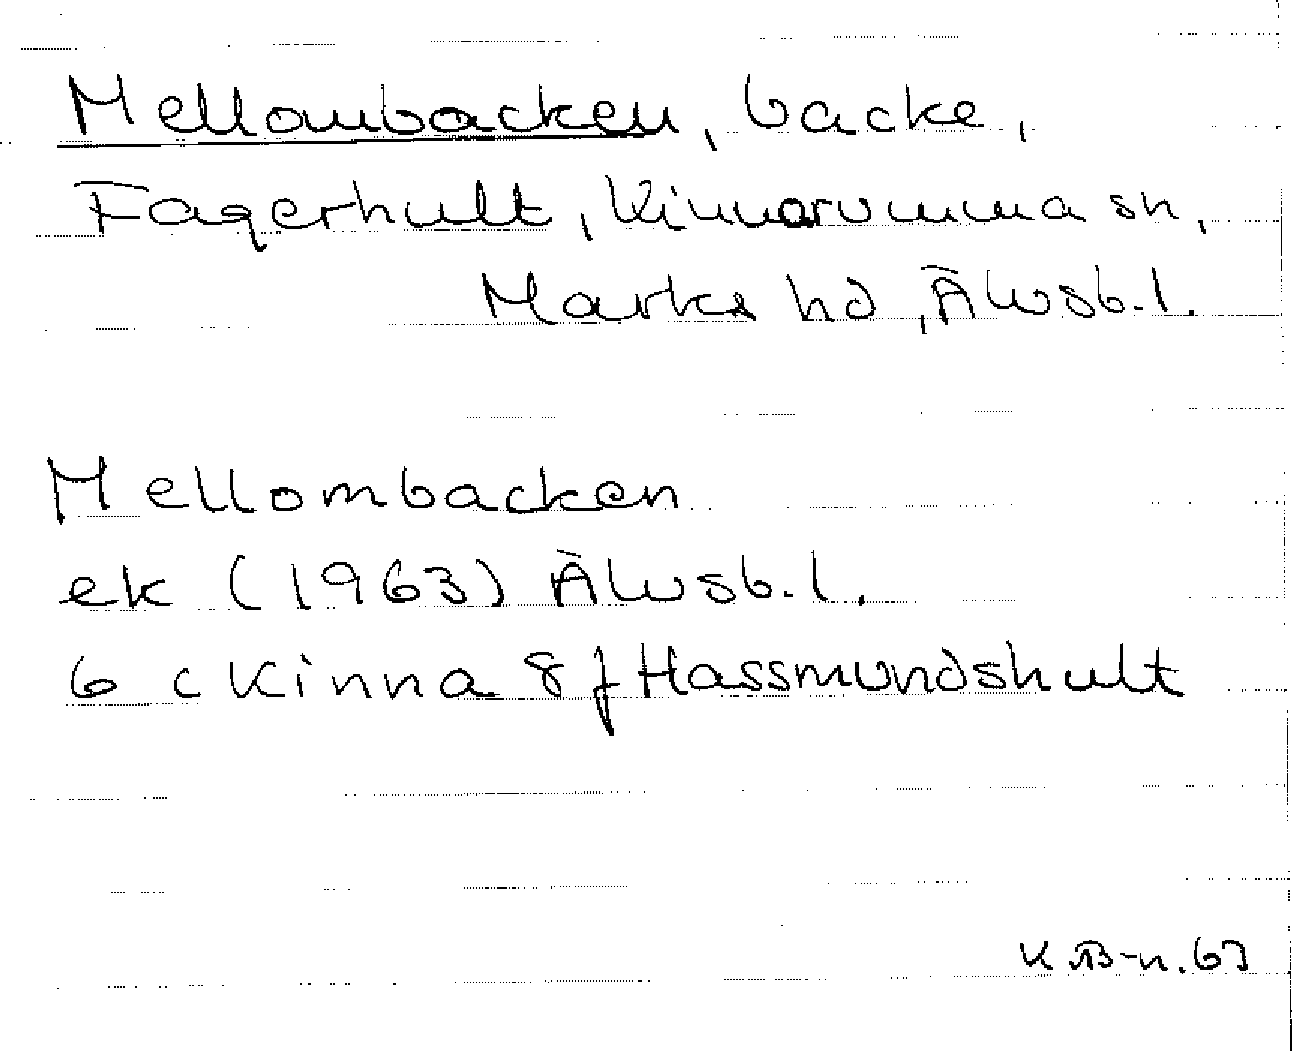 Mellombacken, backe,
Fagerhult, Kinnarumma sn,
Marks hd, Älvsb. l.
Mellombacken
ek (1963) Älvsb. l.
6 c Kinna 8 f Hassmundshult
K B-n. 63